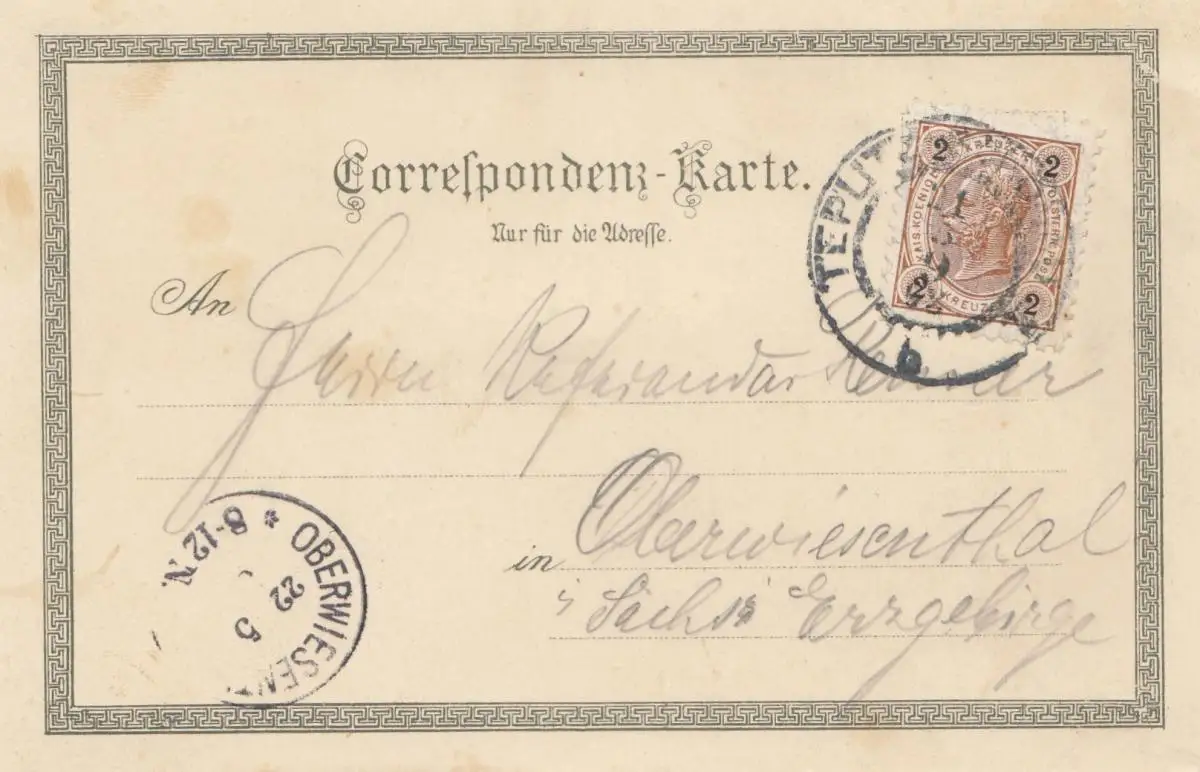 Correſpondenz-Karte.
Nur für die Adreſſe.
An
Herrn Referendar
in Oberwiesenthal
i/ Sächs. Erzgebirge
TEPL
2 KREUZER 2
KAIS. KOENIGL. OESTERR. POST
2 KREUZER 2
OBERWIESEN
22 5
8-12 N.